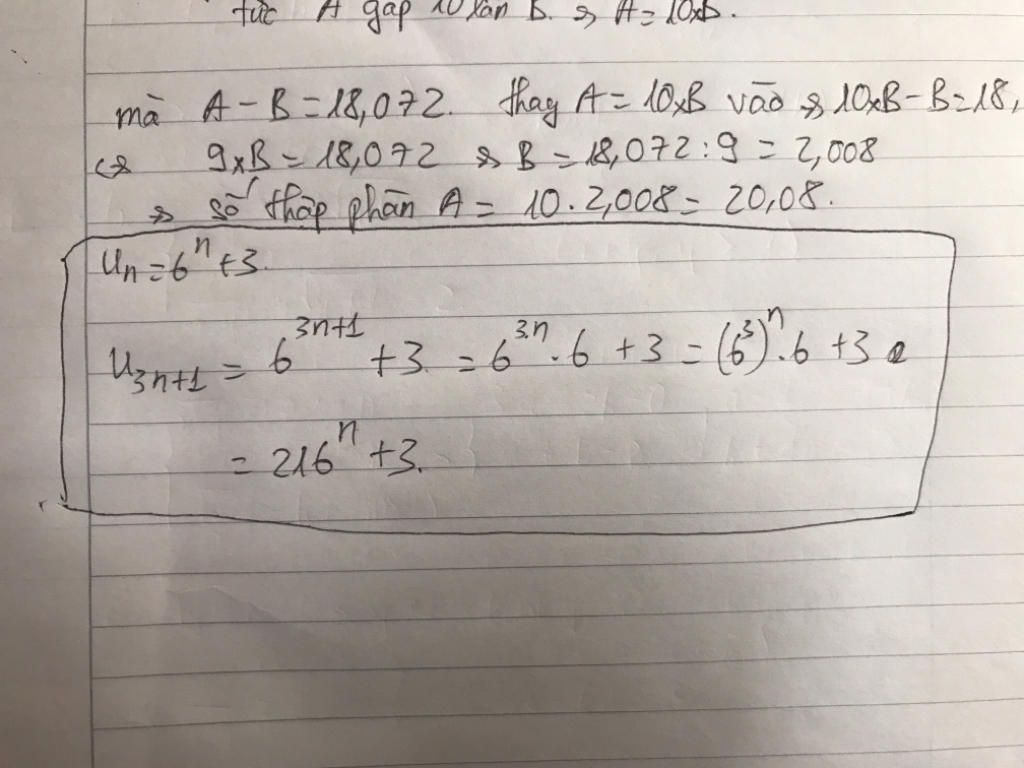 tức A gấp 10 lần B. => A = 10xB.
mà A - B = 18,072. thay A = 10xB vào => 10xB - B = 18,
<=> 9xB = 18,072 => B = 18,072 : 9 = 2,008
=> số thập phân A = 10 . 2,008 = 20,08.
Uₙ = 6ⁿ + 3.
U₃ₙ₊₁ = 6³ⁿ⁺¹ + 3 = 6³·ⁿ . 6 + 3 = (6³)ⁿ . 6 + 3
= 216ⁿ + 3.